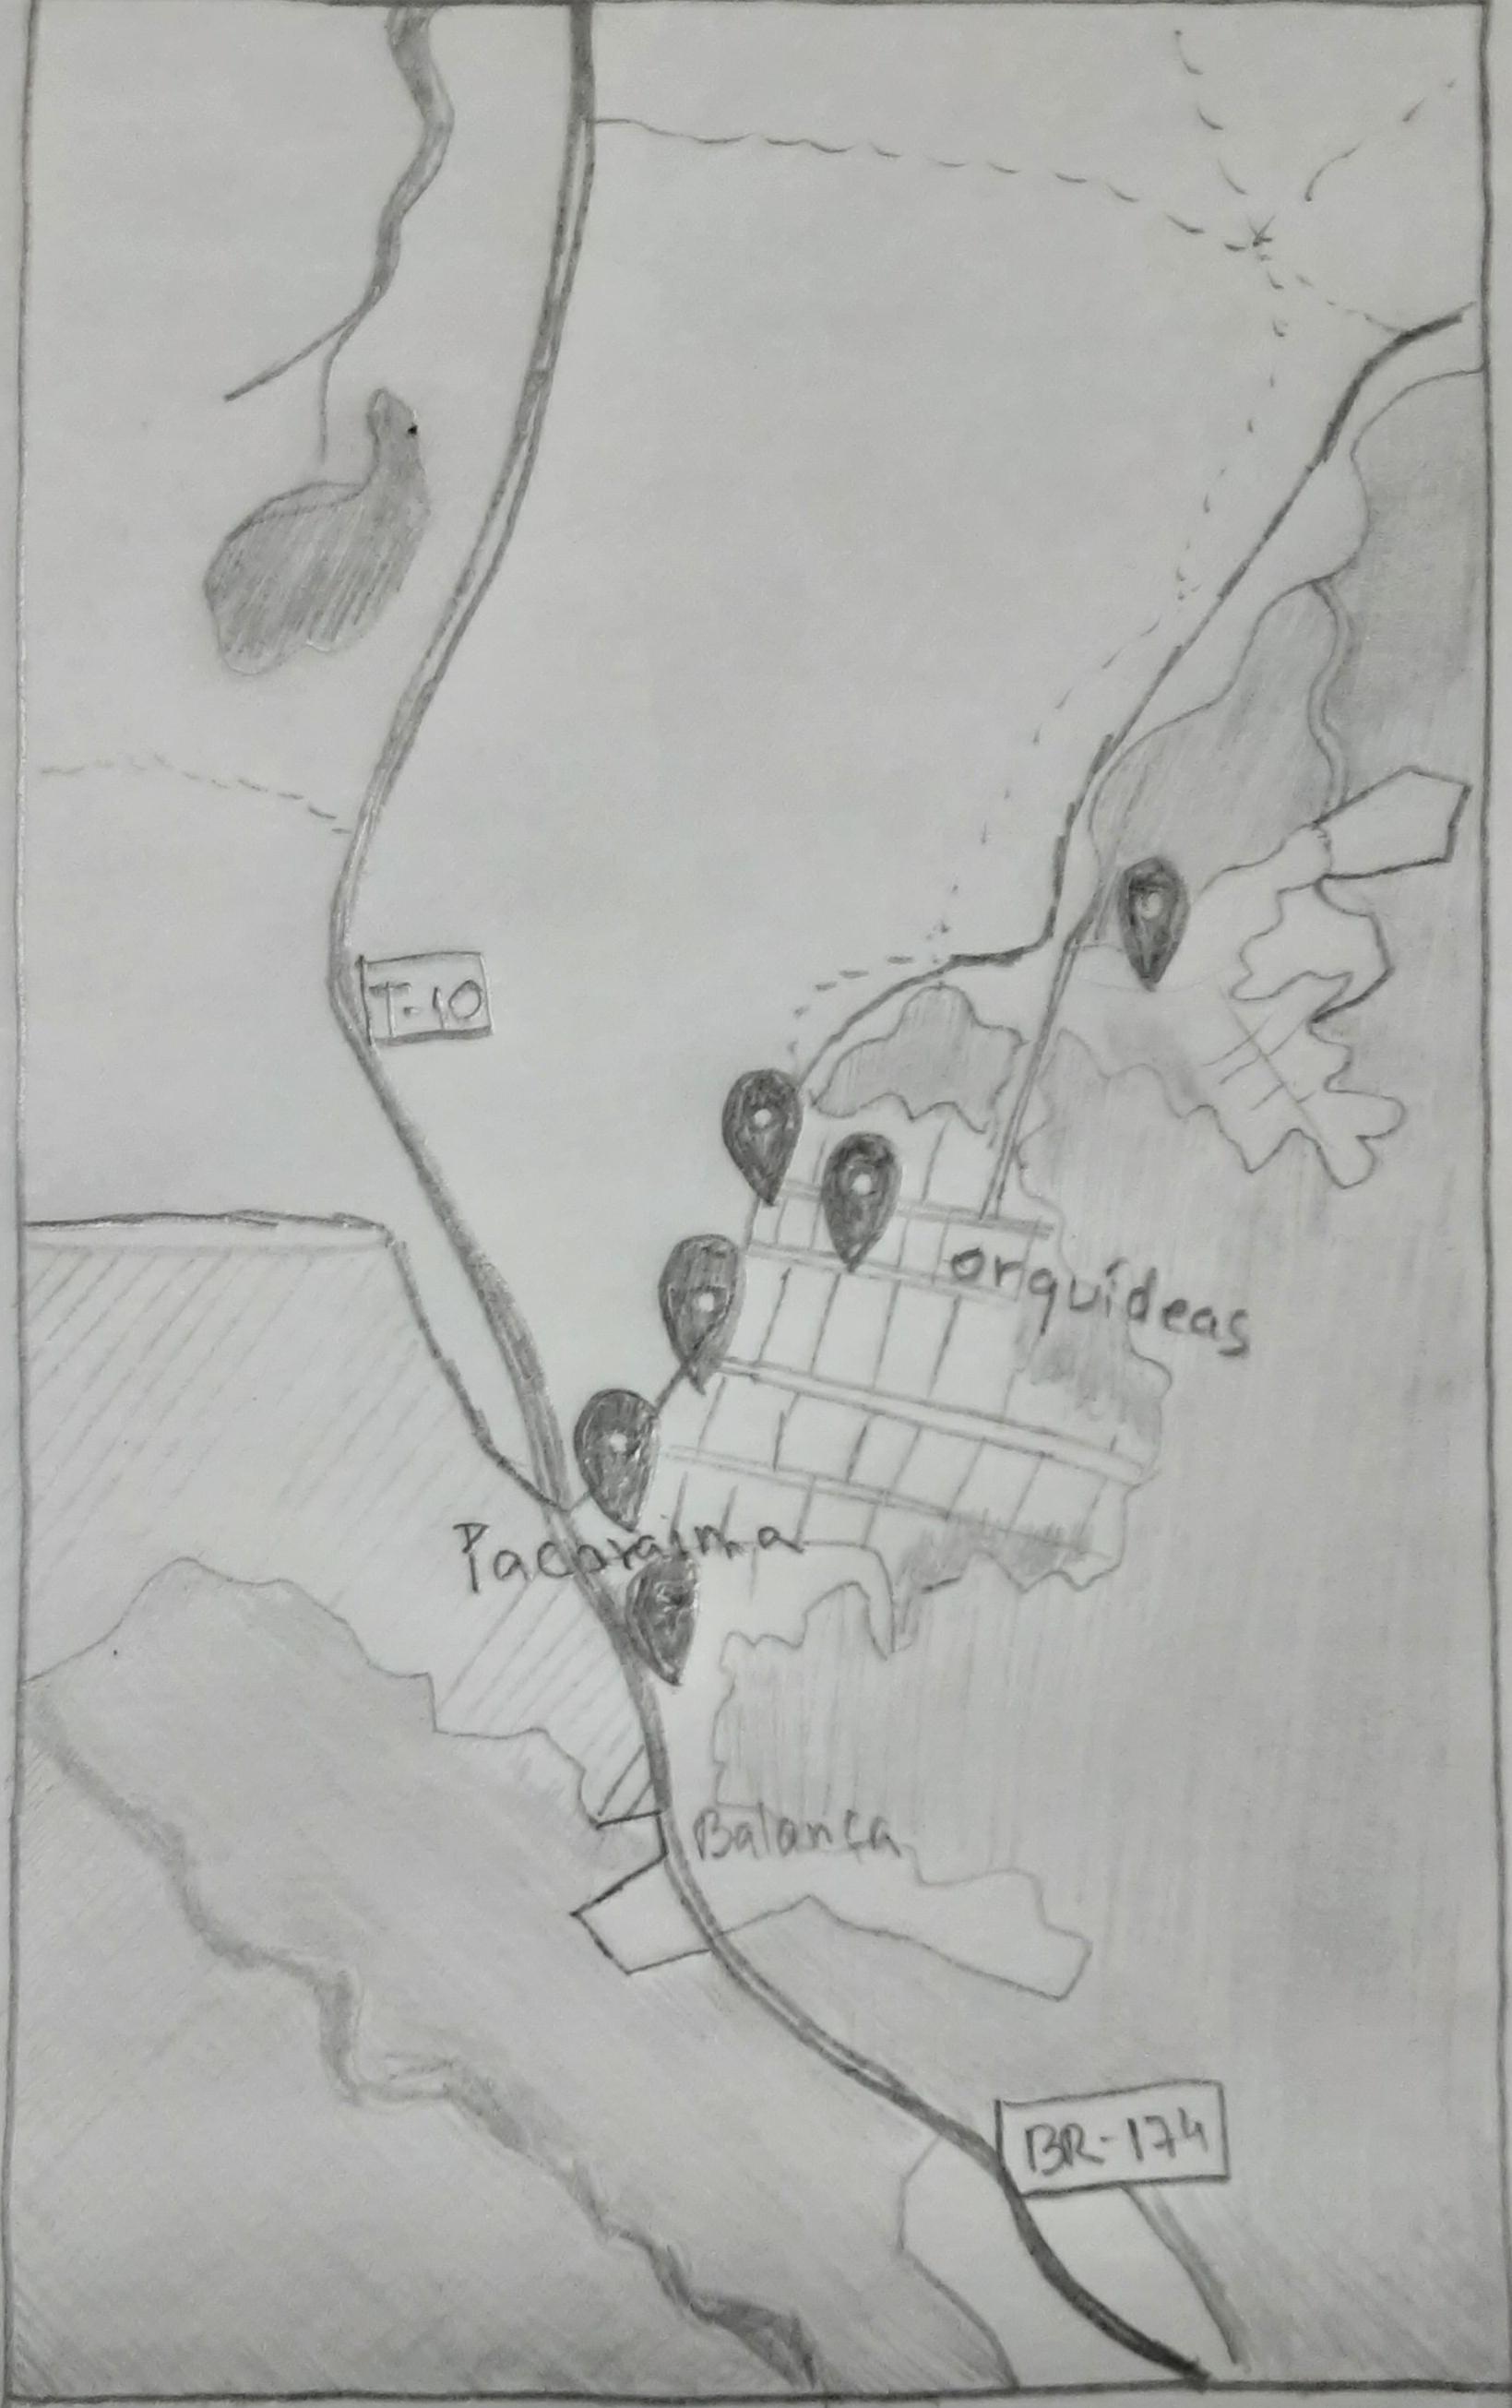 T-10
orquídeas
Pacaraima
Balança
BR-174